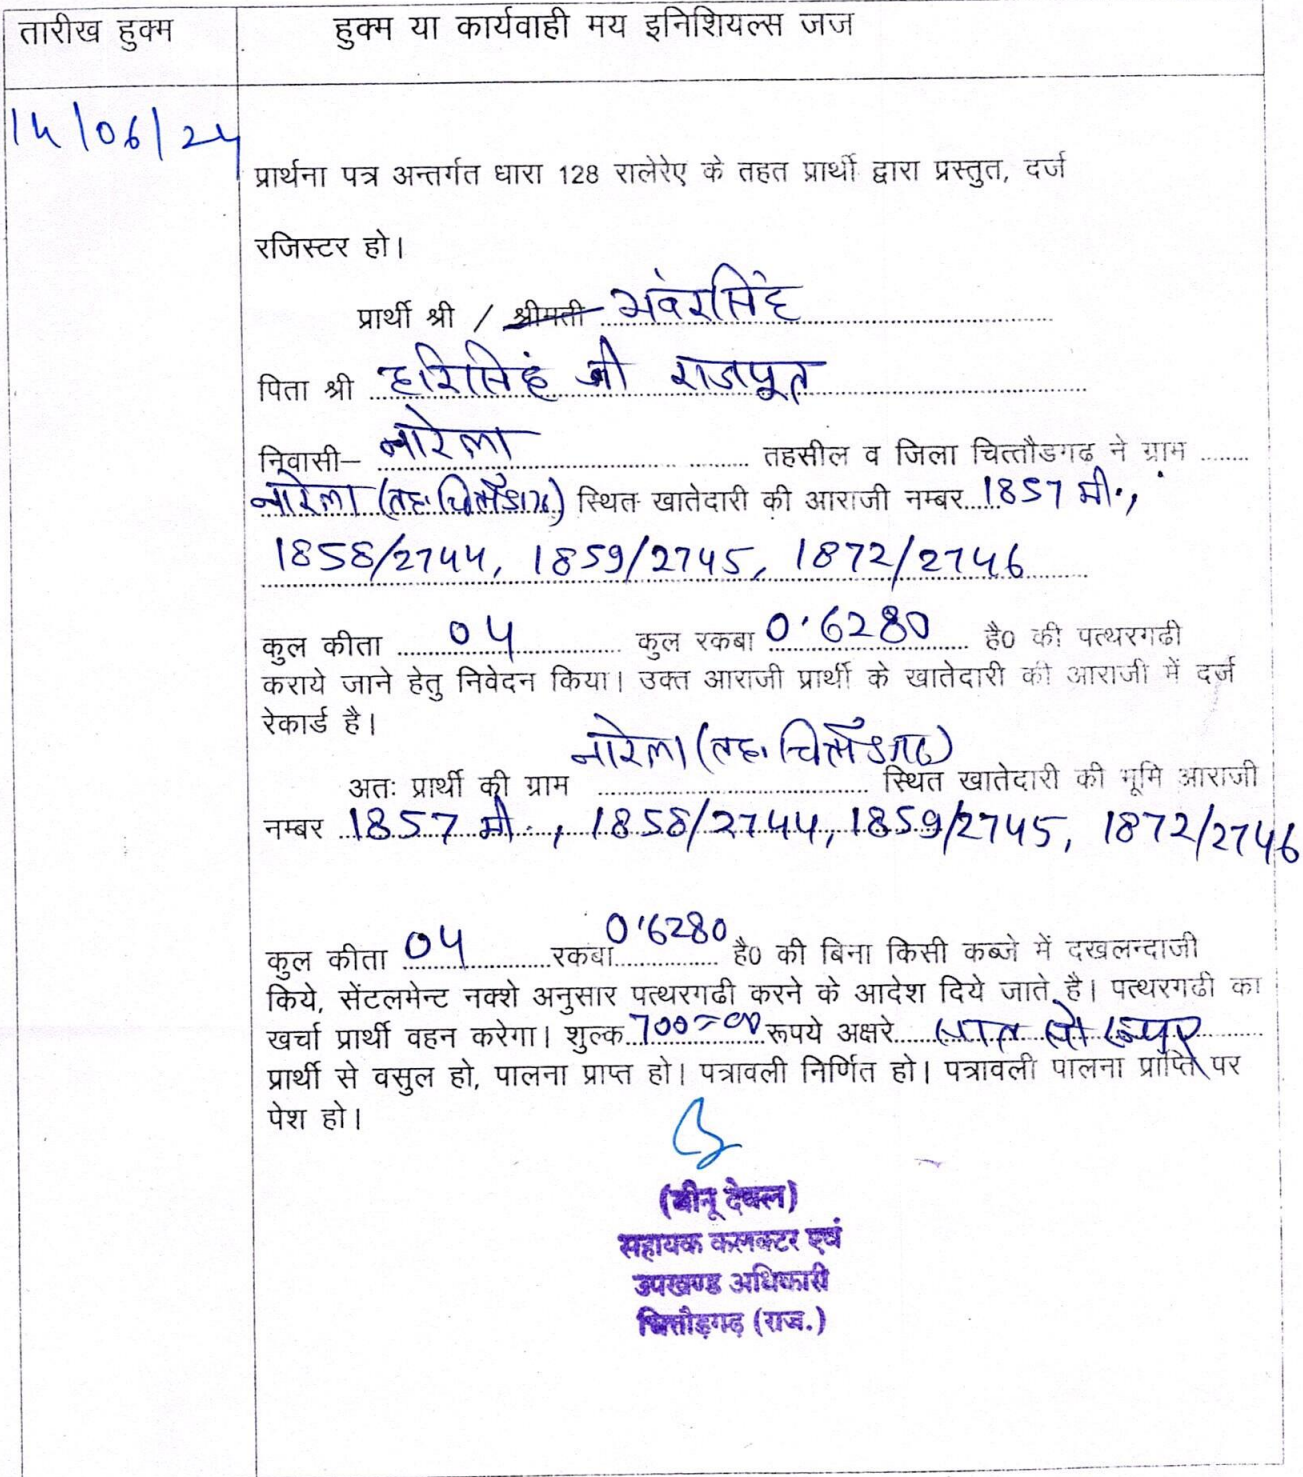 तारीख हुक्म हुक्म या कार्यवाही मय इनिशियल्स जज
14/06/24
प्रार्थना पत्र अन्तर्गत धारा 128 रालेरेए के तहत प्रार्थी द्वारा प्रस्तुत, दर्ज
रजिस्टर हो।
प्रार्थी श्री / श्रीमती भवंरसिंह
पिता श्री हरिसिहं जी राजपूत
निवासी– नारेला तहसील व जिला चित्तौडगढ ने ग्राम
नारेला (तह. चित्तौडगढ) स्थित खातेदारी की आराजी नम्बर 1857 मी.,
1858/2744, 1859/2745, 1872/2746
कुल कीता 04 कुल रकबा 0.6280 है0 की पत्थरगढी
कराये जाने हेतु निवेदन किया। उक्त आराजी प्रार्थी के खातेदारी की आराजी में दर्ज
रेकार्ड है।
अतः प्रार्थी की ग्राम नारेला (तह. चित्तौडगढ) स्थित खातेदारी की भूमि आराजी
नम्बर 1857 मी., 1858/2744, 1859/2745, 1872/2746
कुल कीता 04 रकबा 0.6280 है0 की बिना किसी कब्जे में दखलन्दाजी
किये, सेंटलमेन्ट नक्शे अनुसार पत्थरगढी करने के आदेश दिये जाते है। पत्थरगढी का
खर्चा प्रार्थी वहन करेगा। शुल्क 700=00 रूपये अक्षरे सात सो रूपए
प्रार्थी से वसुल हो, पालना प्राप्त हो। पत्रावली निर्णित हो। पत्रावली पालना प्राप्ति पर
पेश हो।
(बीनू देवल)
सहायक कलक्टर एवं
उपखण्ड अधिकारी
चित्तौड़गढ़ (राज.)